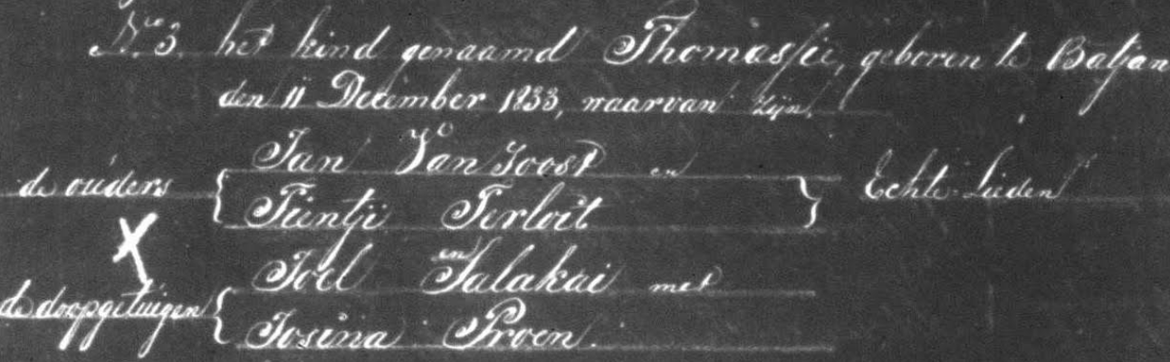 No. 3. het kind genaamd Thomasjie, geboren te Batjan
den 11 December 1833, waarvan zijn,
de ouders { Jan Van Joost en
Tientji Terloit } Echte Lieden
X
de doopgetuigen { Joel en Salakai met
Josina Proen.